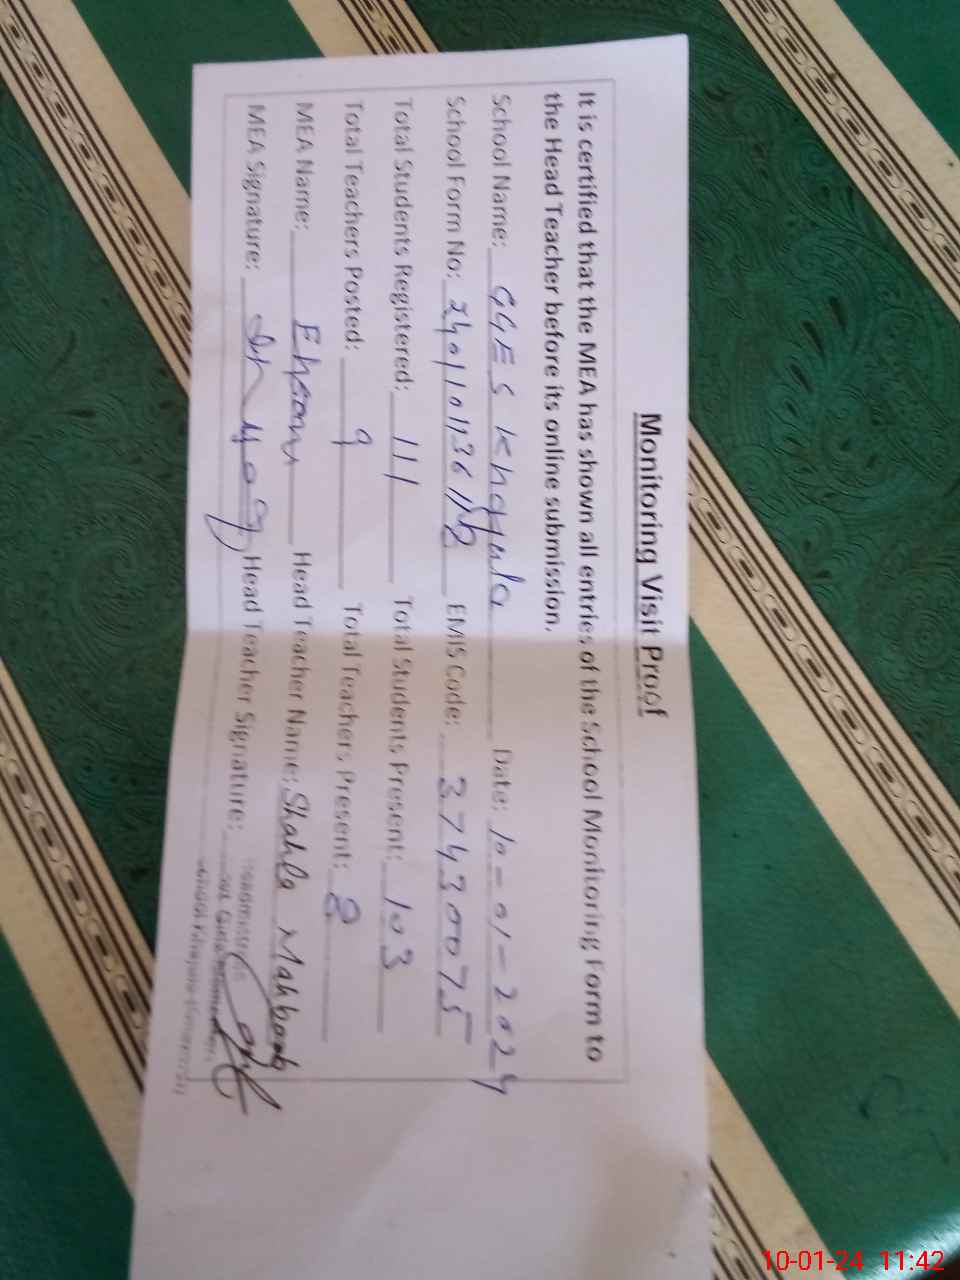 Monitoring Visit Proof
It is certified that the MEA has shown all entries of the School Monitoring Form to
the Head Teacher before its online submission.
School Name: GGES Khajula Date: 10-01-2024
School Form No: EMIS Code: 37430075
Total Students Registered: 111 Total Students Present: 103
Total Teachers Posted: 9 Total Teachers Present: 8
MEA Name: Head Teacher Name: Shahla Mahboob
MEA Signature: Head Teacher Signature:
10-01-24 11:42